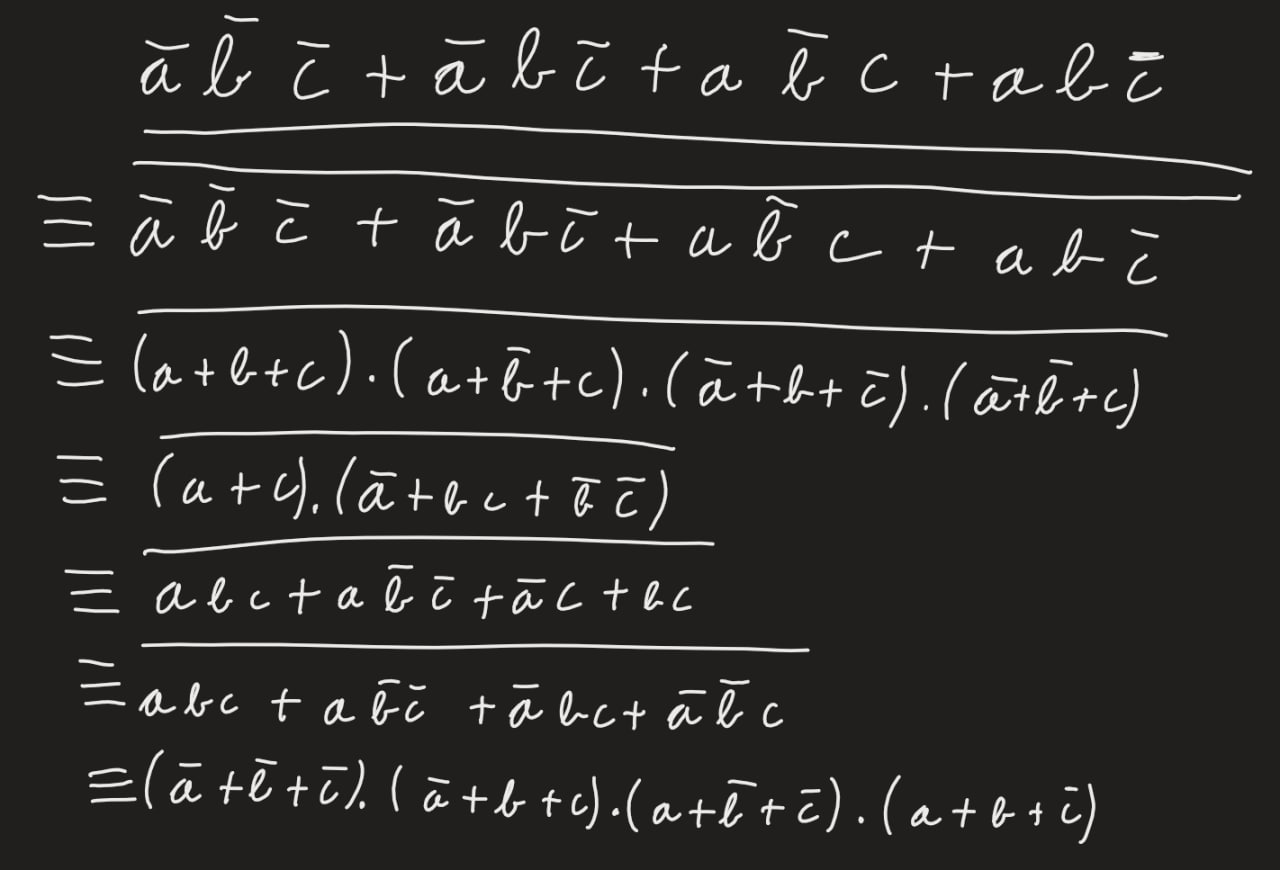 ā b̄ c̄ + ā b c̄ + a b̄ c + a b c̄
≡ \overline{\overline{ā b̄ c̄ + ā b c̄ + a b̄ c + a b c̄}}
≡ \overline{(a + b + c) . (a + b̄ + c) . (ā + b + c̄) . (ā + b̄ + c)}
≡ \overline{(a + c) . (ā + b c + b̄ c̄)}
≡ \overline{a b c + a b̄ c̄ + ā c + b c}
≡ \overline{a b c + a b̄ c̄ + ā b c + ā b̄ c}
≡ (ā + b̄ + c̄) . (ā + b + c) . (a + b̄ + c̄) . (a + b + c̄)